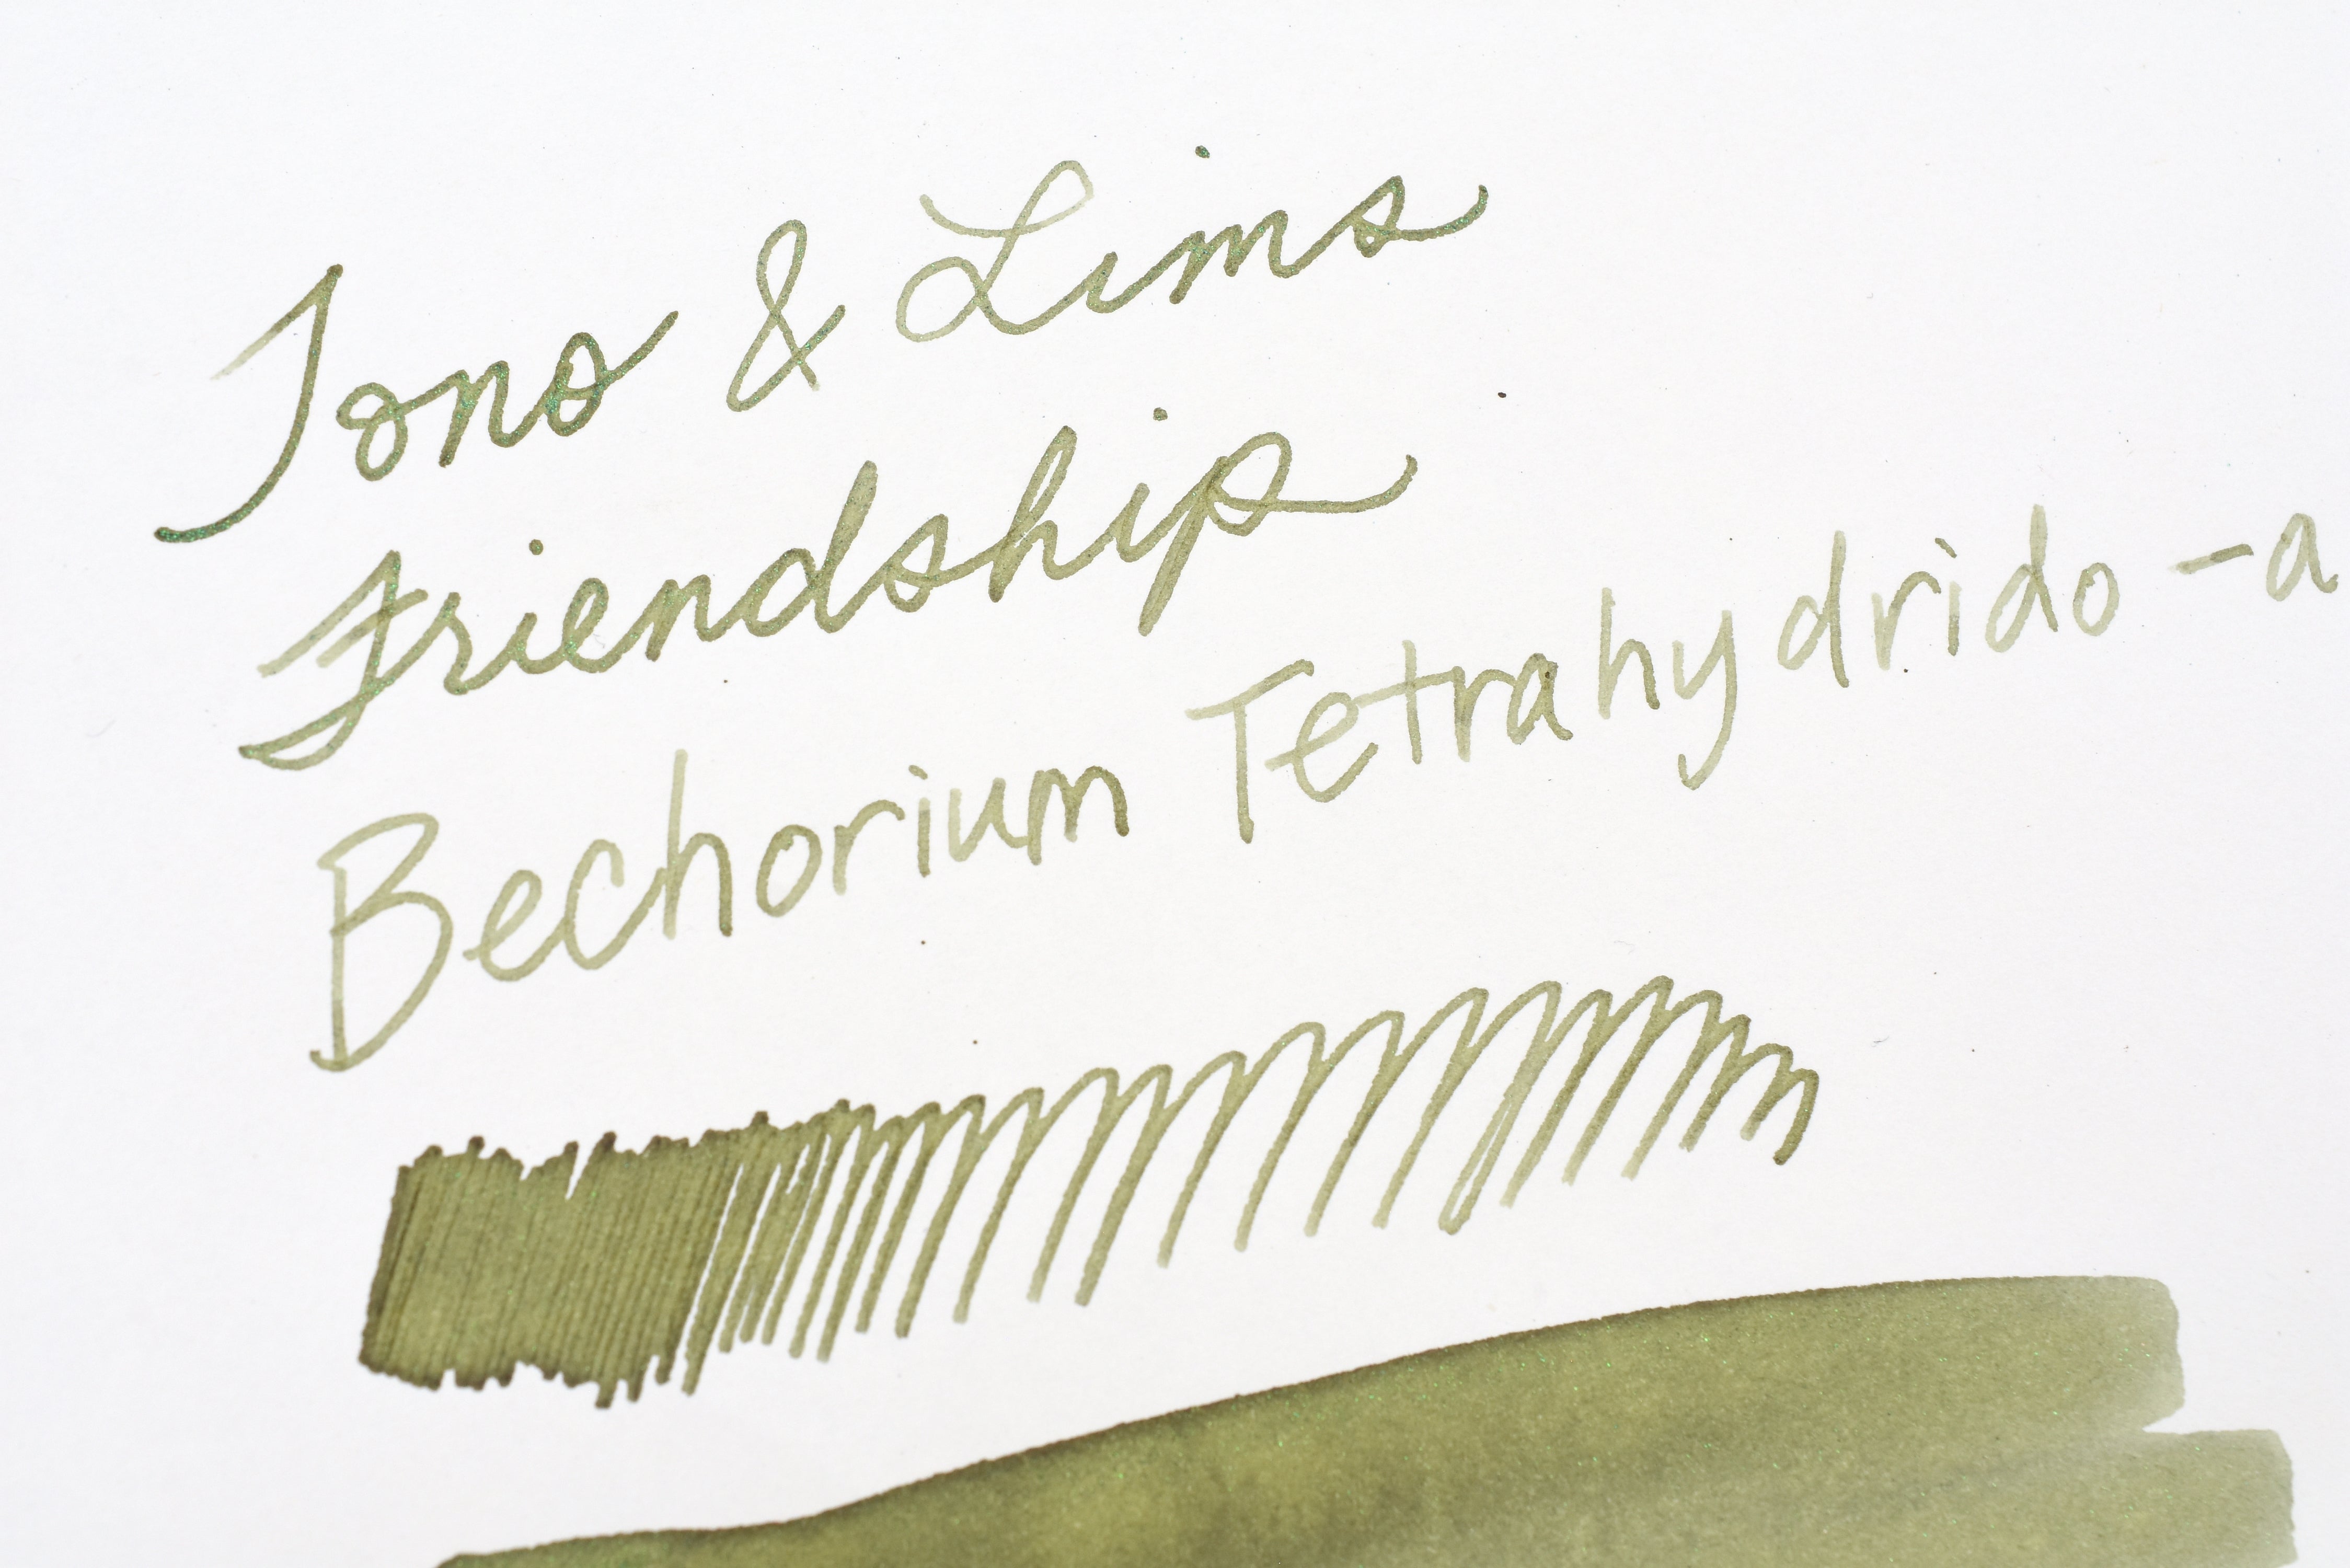 Jono & Lims
Friendship
Bechorium Tetrahydrido-a